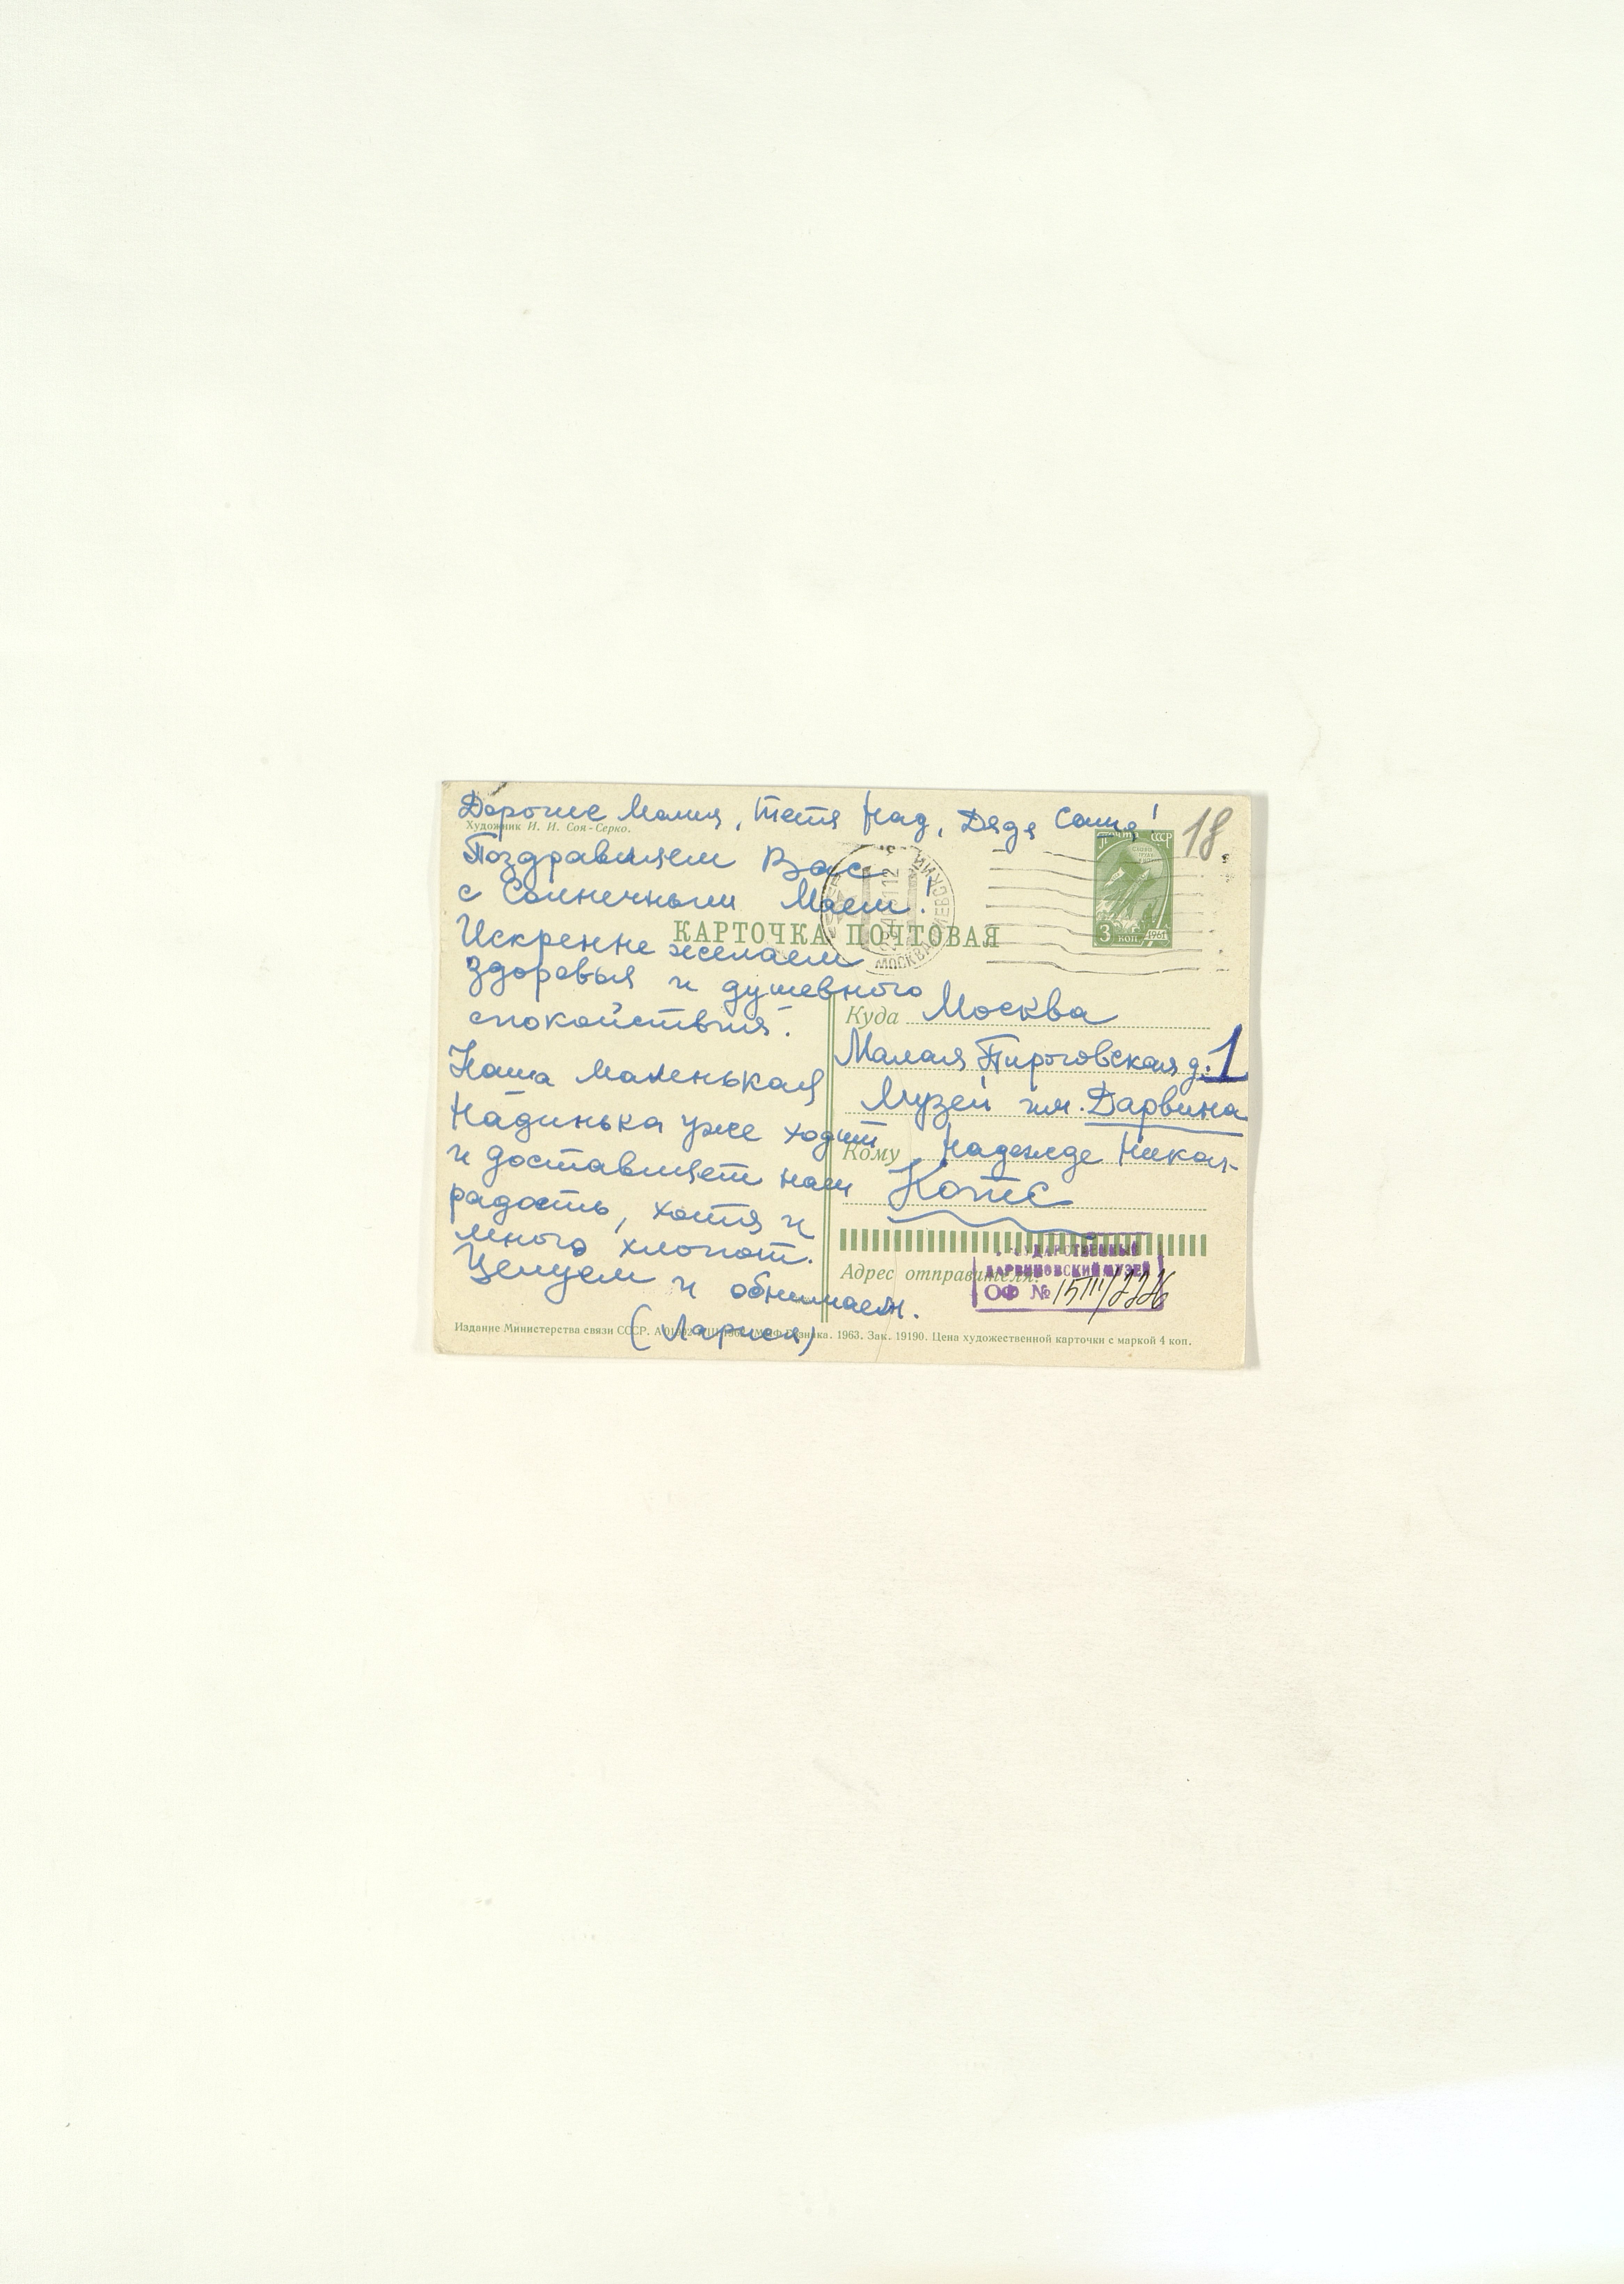 Дорогие Мамия, Тетя Над, Дядя Саша!
18.
Художник И. И. Соя-Серко.
Поздравляем Вас
с Солнечным Маем!
ПОЧТА СССР
3 коп 1961
МОСКВА
КАРТОЧКА ПОЧТОВАЯ
Искренне желаем
здоровья и душевного
спокойствия.
Наша маленькая
Надинька уже ходит
и доставляет нам
радость, хотя и
много хлопот.
Целуем и обнимаем.
(Лариса)
Куда Москва
Малая Пироговская д. 1
Музей им. Дарвина
Кому Надежде Никол-
Котс
Адрес отправителя:
ГОСУДАРСТВЕННЫЙ
ДАРВИНОВСКИЙ МУЗЕЙ
ОФ №
Издание Министерства связи СССР. 1963. Зак. 19190. Цена художественной карточки с маркой 4 коп.